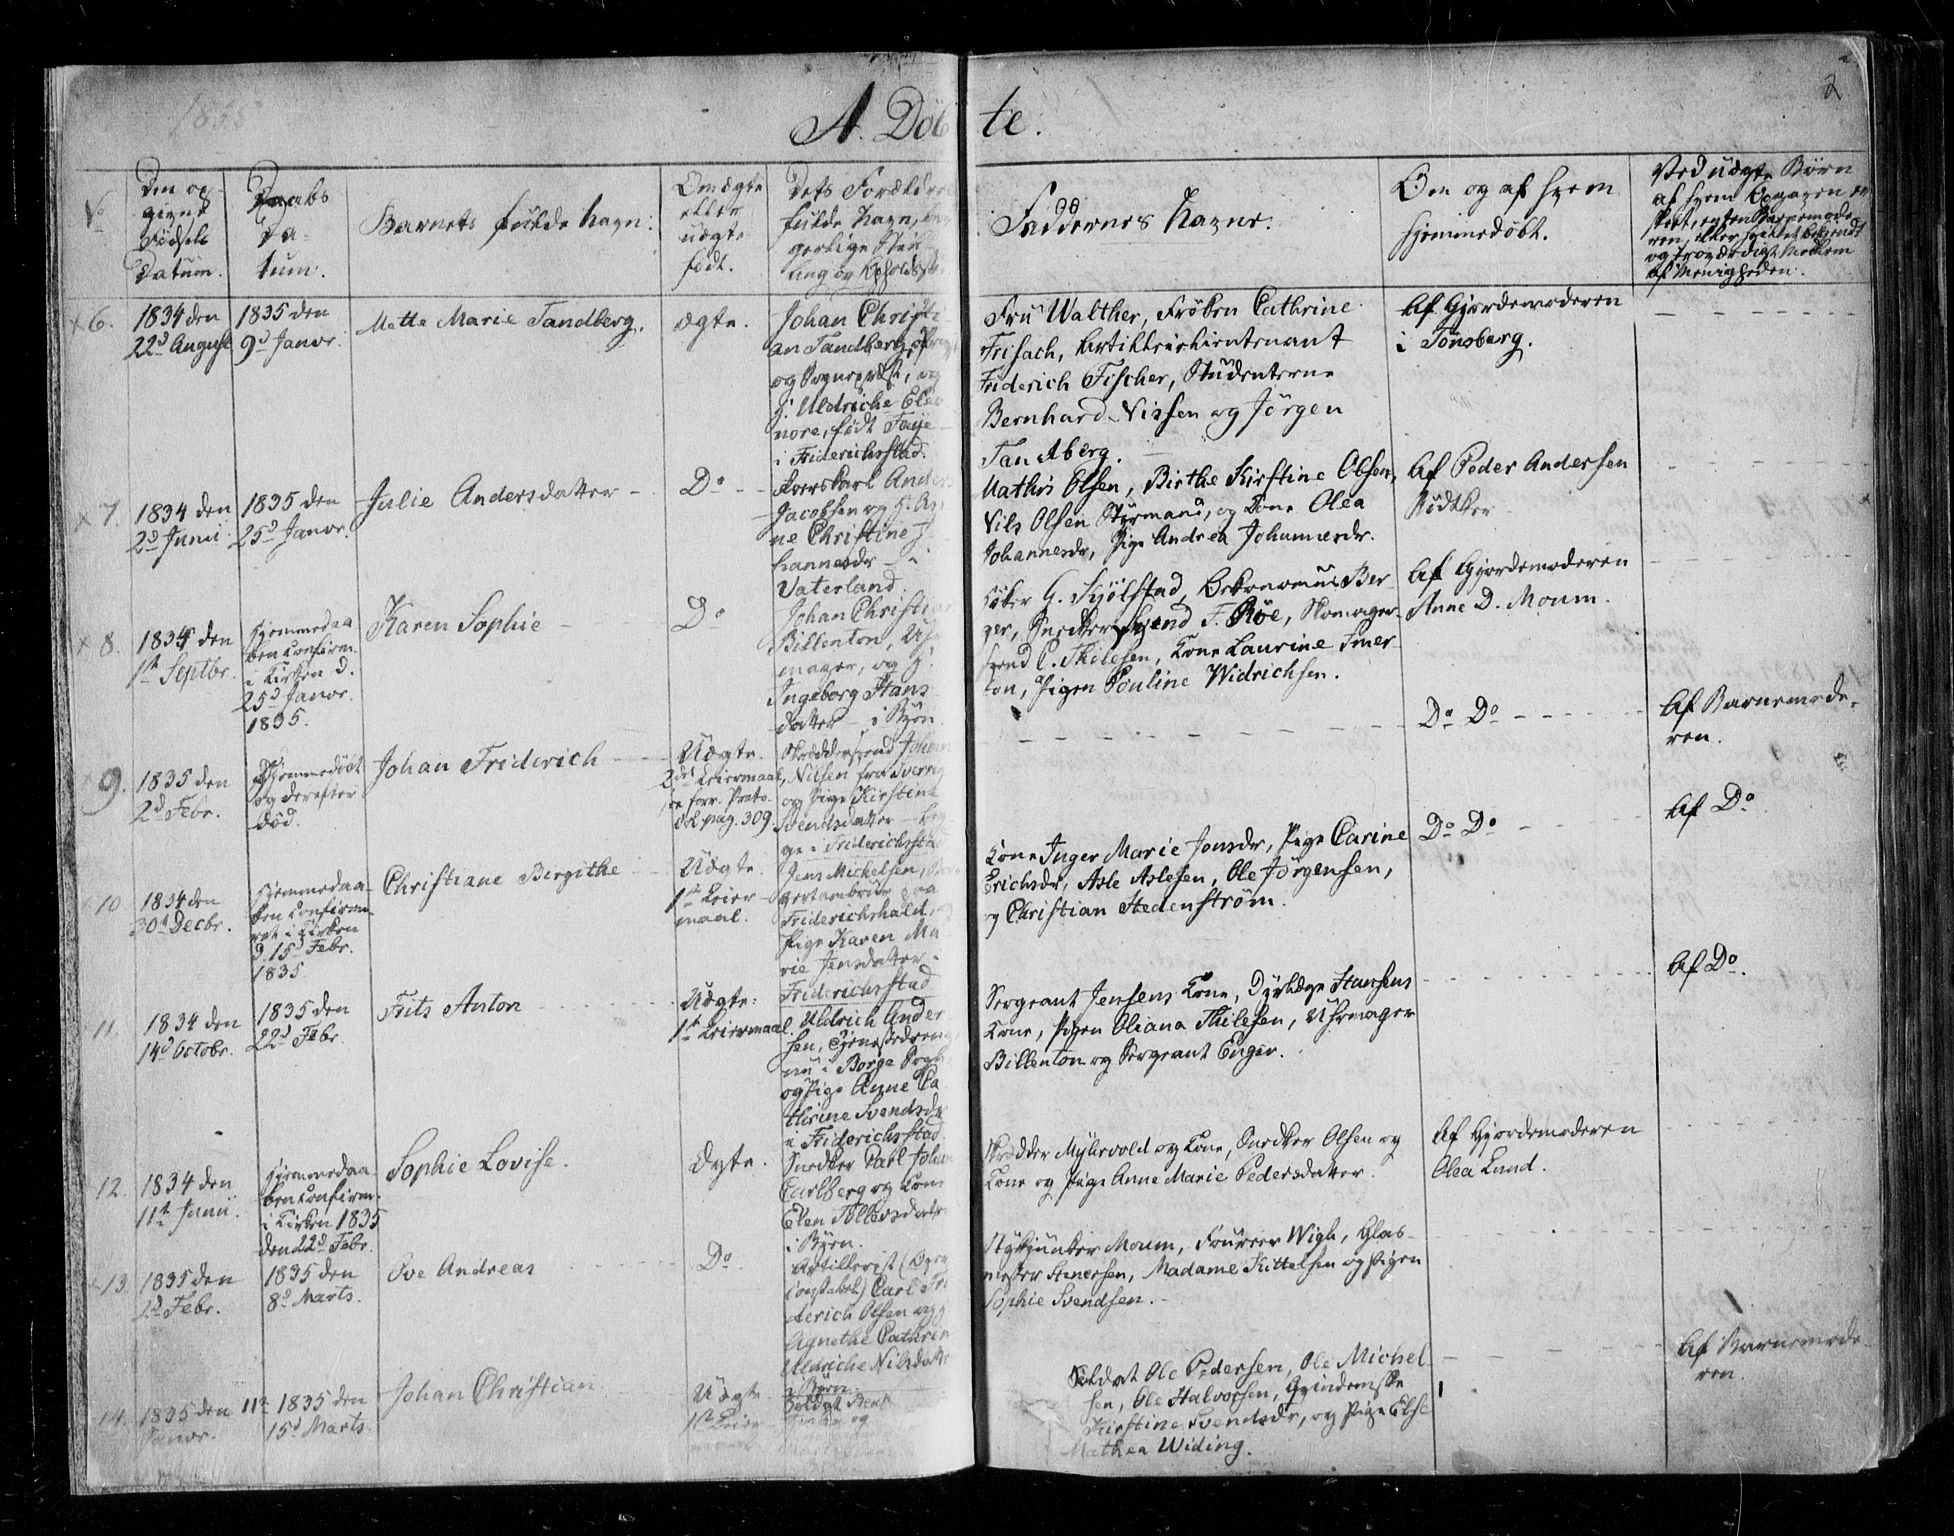 1835
A. Døbte.
2
No
Den opgivne Fødsels Datum.
Daabs Datum.
Barnets fulde Navn.
Om ægte eller uægte født.
Dets Forældres fulde Navn, borgerlige Stilling og Opholdssted
Faddernes Navne.
Om og af hvem hjemmedøbt.
Ved uægte Børn af hvem Opgaven er skeet, enten Barnemoderen, eller hvilket bekjendt og troværdigt Medlem af Menigheden.
6.
1834 den
22d August
1835 den
9d Janvr.
Mette Marie Tandberg.
Ægte.
Johan Christi
an Tandberg,
og Sognepræst, og
H. Uldriche Eleo
nore, født Faye
i Friderichsstad.
Fru Walther, Frøken Cathrine
Frisach, Artillerielieutenant
Friderich Fischer, Studenterne
Bernhard Nissen og Jörgen
Tandberg.
Af Gjordemoderen
i Tönsberg.
7.
1834 den
2d Junii
1835 den
25d Janvr.
Julie Andersdatter
Do
Anders
Jacobsen og H.
ne Christine Jo
hannesdr i
Vaterland.
Mathis Olsen, Birthe Kirstine Olsen,
Nils Olsen Styrmand, og Kone Olea
Johannesdr, Pige Andrea Johannesdr.
Af Peder Andersen
Rödkker
8.
1834 den
1st Septbr.
Hjemmedaa
ben confirm.
i Kirken d.
25d Janvr.
1835.
Karen Sophie
Do
Johan Christian
Billenton, Uhr
mager, og H.
Ingeborg Hans
datter i Byen.
G. Kjölstad, Oekonomus Ber
ger, Snedkersvend F. Röe, Skomager
svend C. Thilesen, Kone Laurine Emer
ton, Pigen Pouline Widrichsen.
Af Gjordemoderen
Anne D. Moum.
9.
1835 den
2d Febr.
Hjemmedöbt
og derefter
död.
Johan Friderich
Uægte.
2det Leiermaal,
se forr. Proto
col pag. 309.
Skræddersvend Johan
Nilsen fra Sverrig
og Pige Kirstine
Svendsdatter - beg
ge i Friderichsstad
Do Do
Af Barnemode
ren.
10
1834 den
30d Decbr.
Hjemmedaa
ben confirme
ret i Kirken
d. 15d Febr.
1835
Christiane Birgithe
Uægte.
1st Leier
maal.
Jens Michelsen,
gertambour paa
Friderichshald, og
Pige Karen Ma
rie Jensdatter i
Friderichsstad
Kone Inger Marie Jonsdr, Pige Carine
Erichsdr, Asle Aslesen, Ole Jörgensen,
og Christian Stedenström.
Do Do
Af Do
11.
1834 den
14d Octobr.
1835 den
22d Febr.
Frits Anton
Uægte:
1st Leiermaal.
Uldrich Ander
sen, Tjenestedreng,
nu i Borge Sogn
og Pige Anne Ca
thrine Svendsdr
i Friderichsstad.
Sergeant Jensens Kone, Dyrlæge Hansens
Kone, Pigen Oliana Thilesen, Uhrmager
Billenton og Sergeant Enger.
Af Do.
12.
1834 den
11te Junii.
Hjemmedaa
ben confirm.
i Kirken 1835
den 22d Febr.
Sophie Lovise.
Ægte.
Snedker Carl Johan
Carlberg og Kone
Elen Tollevsdatter
i Byen.
Skrædder Myhrvold og Kone, Snedker Olsen og
Kone og Pige Anne Marie Pedersdatter.
Af Gjordemoderen
Olea Lund.
13.
1835 den
2d Febr.
1835 den
8d Marts.
Ove Andreas
Do.
Artillerist
Carl Fri
derich Olsen og
Agnethe Cathrine
Uldriche Nilsdatter
i Byen.
Stykjunker Moum, Foureer Wigh, Glas
mester Stenersen, Madame Kittelsen og Pigen
Sophie Svendsen.
14.
1835 den 11te
Janvr.
1835 den
15d Marts.
Johan Christian
Uægte
1st Leier
maal
Soldat
og
Soldat Ole Pedersen, Ole Michel
sen, Ole Halvorsen, Qvindemske
Kirstine Svendsdr, og Pige Else
Mathea Widing.
Af Barnemode
ren.